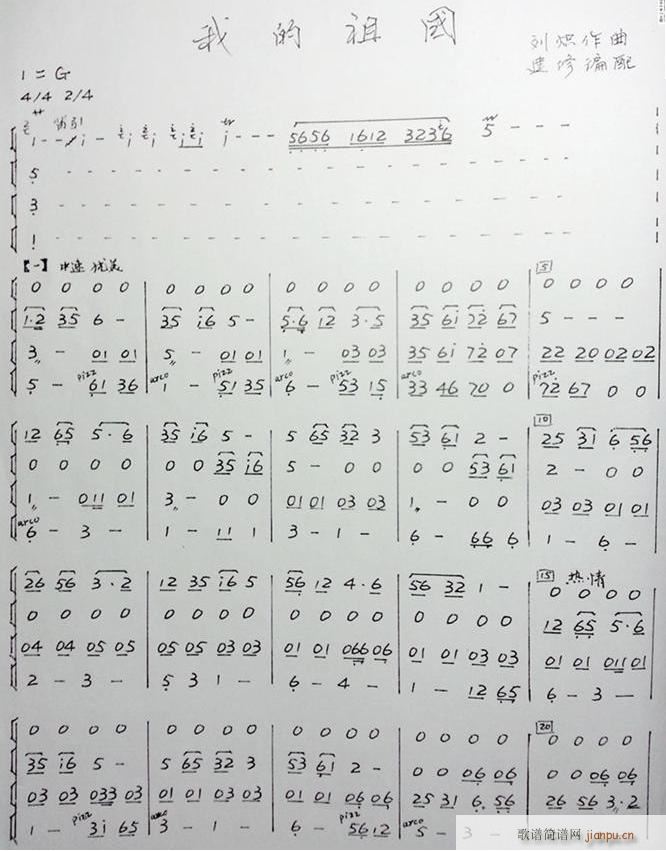 我的祖國
刘炽作曲
建修编配
1=G
4/4 2/4
5656 1612 3236 5 - - -
5 - - -
3 - - -
1 - - -
【一】中速 优美
0 0 0 0 | 0 0 0 0 | 0 0 0 0 | 0 0 0 0 | 5 0 0 0 0
1·2 35 6 - | 35 i6 5 - | 5·6 12 3·5 | 35 6i 72 67 | 5 - - -
3 - 01 01 | 5 - 01 01 | 1 - 03 03 | 35 6i 72 07 | 22 20 02 02
5 - pizz 61 36 | arco 1 - pizz 51 35 | arco 6 - pizz 53 15 | arco 33 46 70 0 | pizz 72 67 0 0
12 65 5·6 | 35 i6 5 - | 5 65 32 3 | 53 61 2 - | 10 25 31 6 56
0 0 0 0 | 0 0 35 i6 | 5 - 0 0 | 0 0 53 61 | 2 - 0 0
1 - 011 01 | 3 - 0 0 | 01 01 03 03 | 1 - 0 0 | 03 03 01 01
arco 6 - 3 - | 1 - 11 1 | 3 - 1 - | 6 - 66 6 | 1 - 6 -
26 56 3·2 | 12 35 i6 5 | 56 12 4·6 | 56 32 1 - | 15 热情 0 0 0 0
0 0 0 0 | 0 0 0 0 | 0 0 0 0 | 0 0 0 0 | 12 65 5·6
04 04 05 05 | 05 05 03 03 | 01 01 066 06 | 01 01 03 03 | 01 01 011 01
2 - 3 - | 5 3 1 - | 6 - 4 - | 1 - 12 65 | 6 - 3 -
0 0 0 0 | 0 0 0 0 | 0 0 0 0 | 0 0 0 0 | 20 0 0 0 0
35 i6 5 - | 5 65 32 3 | 53 61 2 - | 0 0 06 06 | 0 0 06 06
03 03 033 03 | 01 01 03 03 | 01 01 06 06 | 25 31 6 56 | 26 56 3·2
1 - pizz 3i 65 | arco 3 - 1 - | 6 - pizz 5612 | arco 5 - 3 -
歌谱简谱网 jianpu.cn